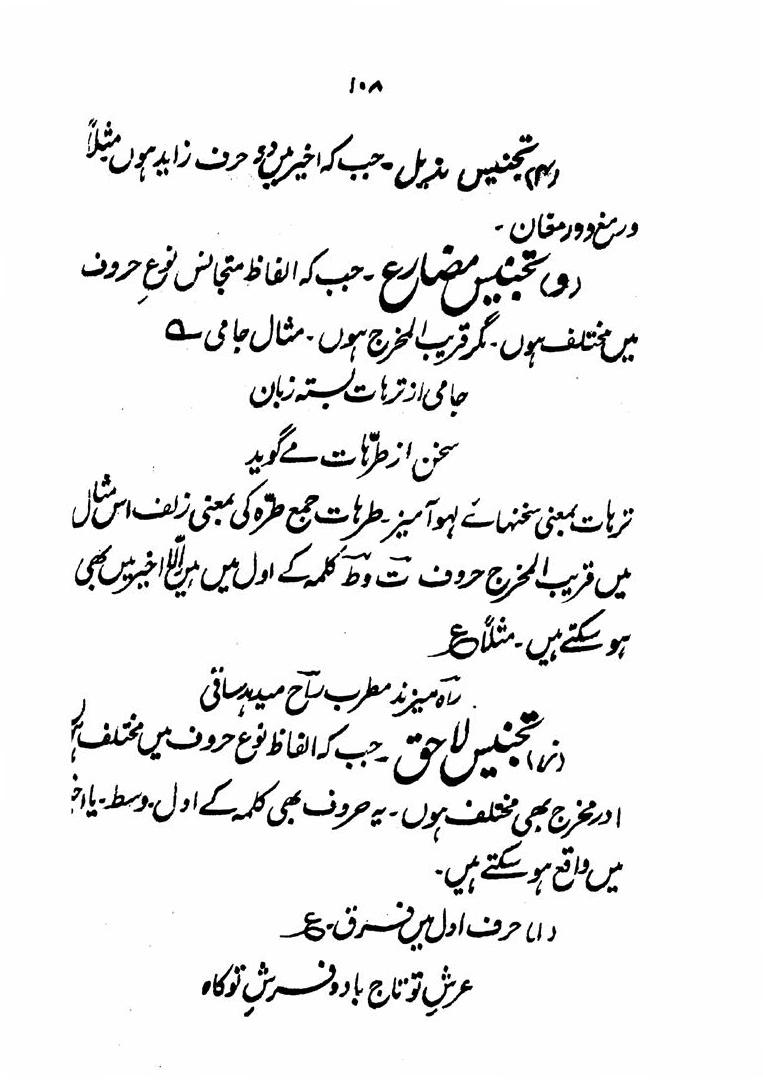 ۱۰۸
(۴) تجنیس مذیل ۔ جب کہ اخیر میں دو حرف زاید ہوں مثلاً
ورمغ و ورمغان ۔
(و) تجنیس مضارع ۔ جب کہ الفاظ متجانس نوعِ حروف
میں مختلف ہوں ۔ مگر قریب المخرج ہوں ۔ مثال جامی ؎
جامی از ترہات بستہ زبان
سخن از طرّہات مے گوید
ترہات بمعنی سخنہائے لہو آمیز ۔ طرہات جمع طرّہ کی بمعنی زلف اس مثال
میں قریب المخرج حروف ت و ط کلمہ کے اول میں ہیں الّا اخیر میں بھی
ہو سکتے ہیں ۔ مثلاً ع
راہ میزند مطرب راح میدہد ساقی
(ز) تجنیس لاحق ۔ جب کہ الفاظ نوع حروف میں مختلف
اور مخرج بھی مختلف ہوں ۔ یہ حروف بھی کلمہ کے اول ۔ وسط ۔ یا
میں واقع ہو سکتے ہیں ۔
(۱) حرف اول میں فرق ۔ ع
عرشِ تو تاج باد و فرشِ تو کاہ